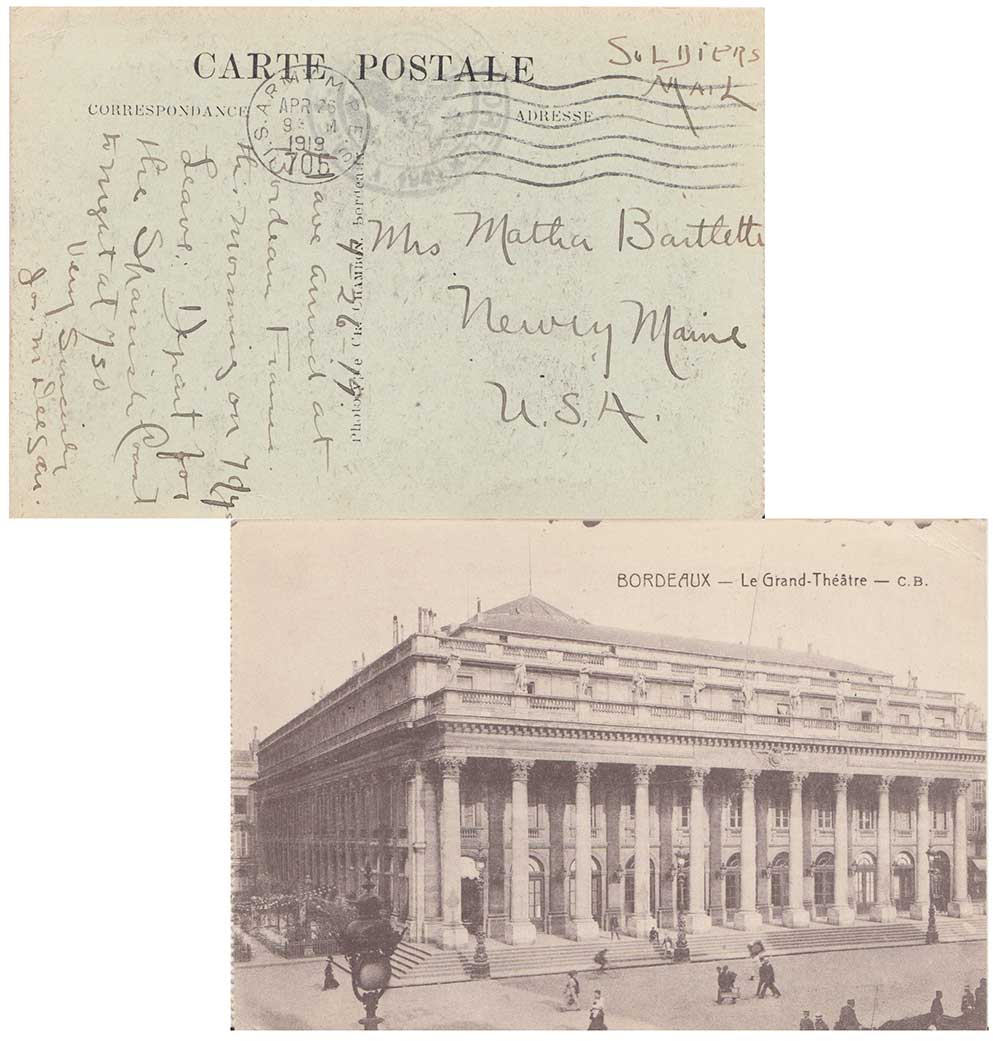 CARTE POSTALE
SOLDIERS
MAIL
CORRESPONDANCE
ADRESSE
U.S. ARMY M.P.E.S.
APR 26
9 M
1919
705
4-26-19
Have arrived at
Bordeaux France.
this morning on 7 dys
Leave: Depart for
the Spanish Coast
tonight at 730
Very Sincerely
Jos. M Deegan.
Phototypie CH. CHAMBON, Bordeaux
Mrs Matha Bartlett
Newry Maine
U.S.A.
BORDEAUX — Le Grand-Théâtre — C.B.